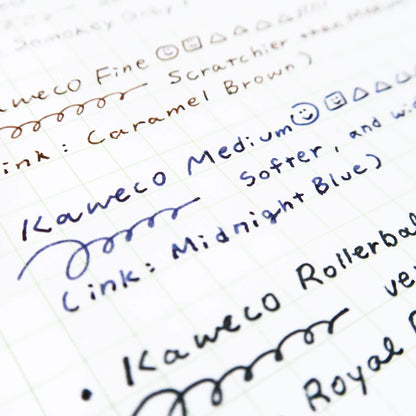 Kaweco Fine
Scratchier than medium
ink: Caramel Brown)
Kaweco Medium
Softer, and
(ink: Midnight Blue)
• Kaweco Rollerbal
ve
Royal